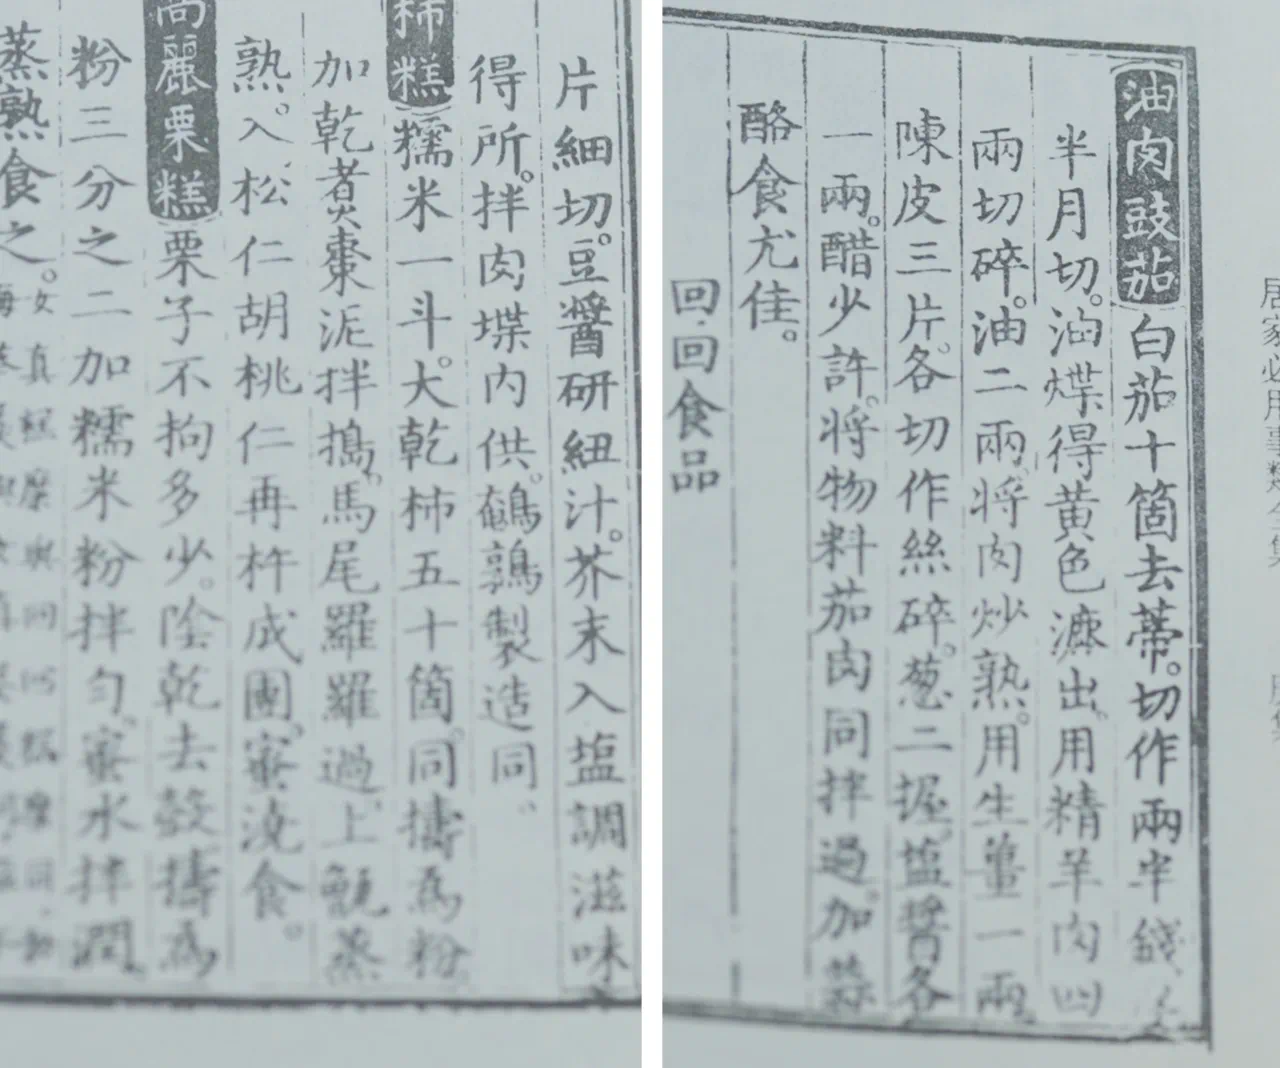 居家必用事類全集
油肉豉茄 白茄十箇去蒂。切作兩半錢
半月切。油煠得黃色漉出。用精羊肉四
兩切碎。油二兩。將肉炒熟。用生薑一兩
陳皮三片。各切作絲碎。葱二握。塩醬各
一兩。醋少許。將物料茄肉同拌過。加蒜
酪食尤佳。
回回食品
片細切。豆醬研紐汁。芥末入塩調滋味
得所。拌肉堞內供。鵪鶉製造同、
柿糕 糯米一斗。大乾柿五十箇。同擣爲粉
加乾煑棗泥拌搗。馬尾羅羅過。上甑蒸
熟。入松仁胡桃仁再杵成團。蜜澆食。
高麗栗糕 栗子不拘多少。陰乾去殼擣爲
粉三分之二加糯米粉拌勻。蜜水拌潤
蒸熟食之。女真糕糜與回回